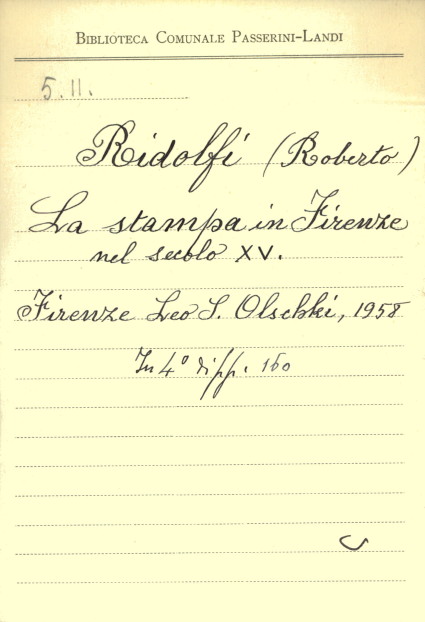 BIBLIOTECA COMUNALE PASSERINI-LANDI
5.II.
Ridolfi (Roberto)
La stampa in Firenze
nel secolo XV.
Firenze Leo S. Olschki, 1958
In 4° di pp. 160